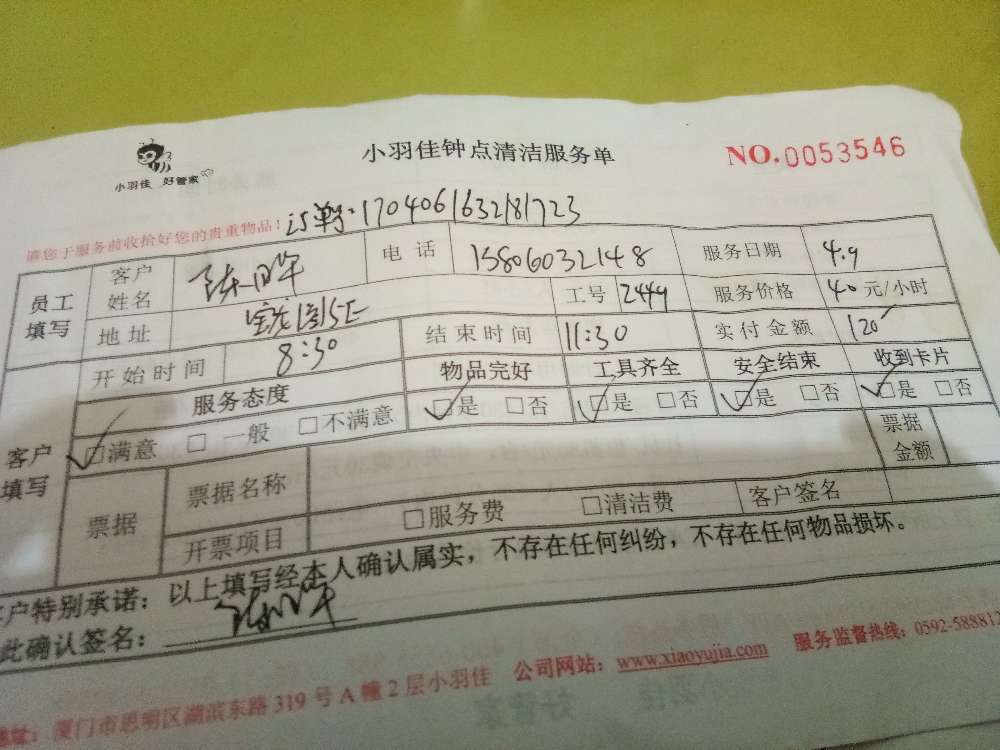 小羽佳 好管家
小羽佳钟点清洁服务单
NO.0053546
请您于服务前收拾好您的贵重物品!
订单号:1704061632181723
员工填写 客户姓名 电话 15806032148 服务日期 4.9
地址 工号 2449 服务价格 40元/小时
开始时间 8:30 结束时间 11:30 实付金额 120
客户填写 服务态度 物品完好 工具齐全 安全结束 收到卡片
□满意 □一般 □不满意 □是 □否 □是 □否 □是 □否 □是 □否
票据 票据名称 票据金额
开票项目 □服务费 □清洁费 客户签名
户特别承诺:以上填写经本人确认属实,不存在任何纠纷,不存在任何物品损坏。
此确认签名:
地址:厦门市思明区湖滨东路319号A幢2层小羽佳 公司网站:www.xiaoyujia.com 服务监督热线:0592-588812